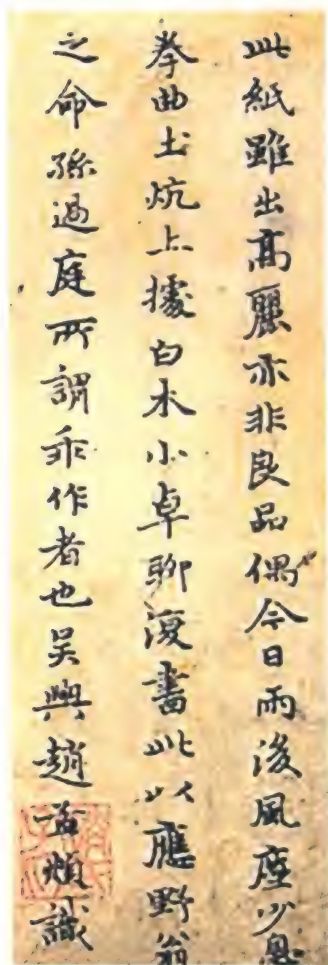 此紙雖出高麗亦非良品偶今日雨後風塵少息
拳曲土炕上據白木小卓聊復書此以應野翁
之命孫過庭所謂乖作者也吴興趙孟頫識